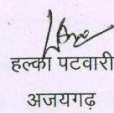 हल्का पटवारी
अजयगढ़